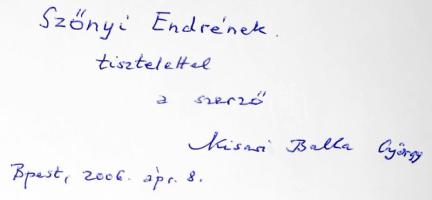 Szőnyi Endrének.
tisztelettel
a szerző
Kisari Balla György
Bpest, 2006. ápr. 8.